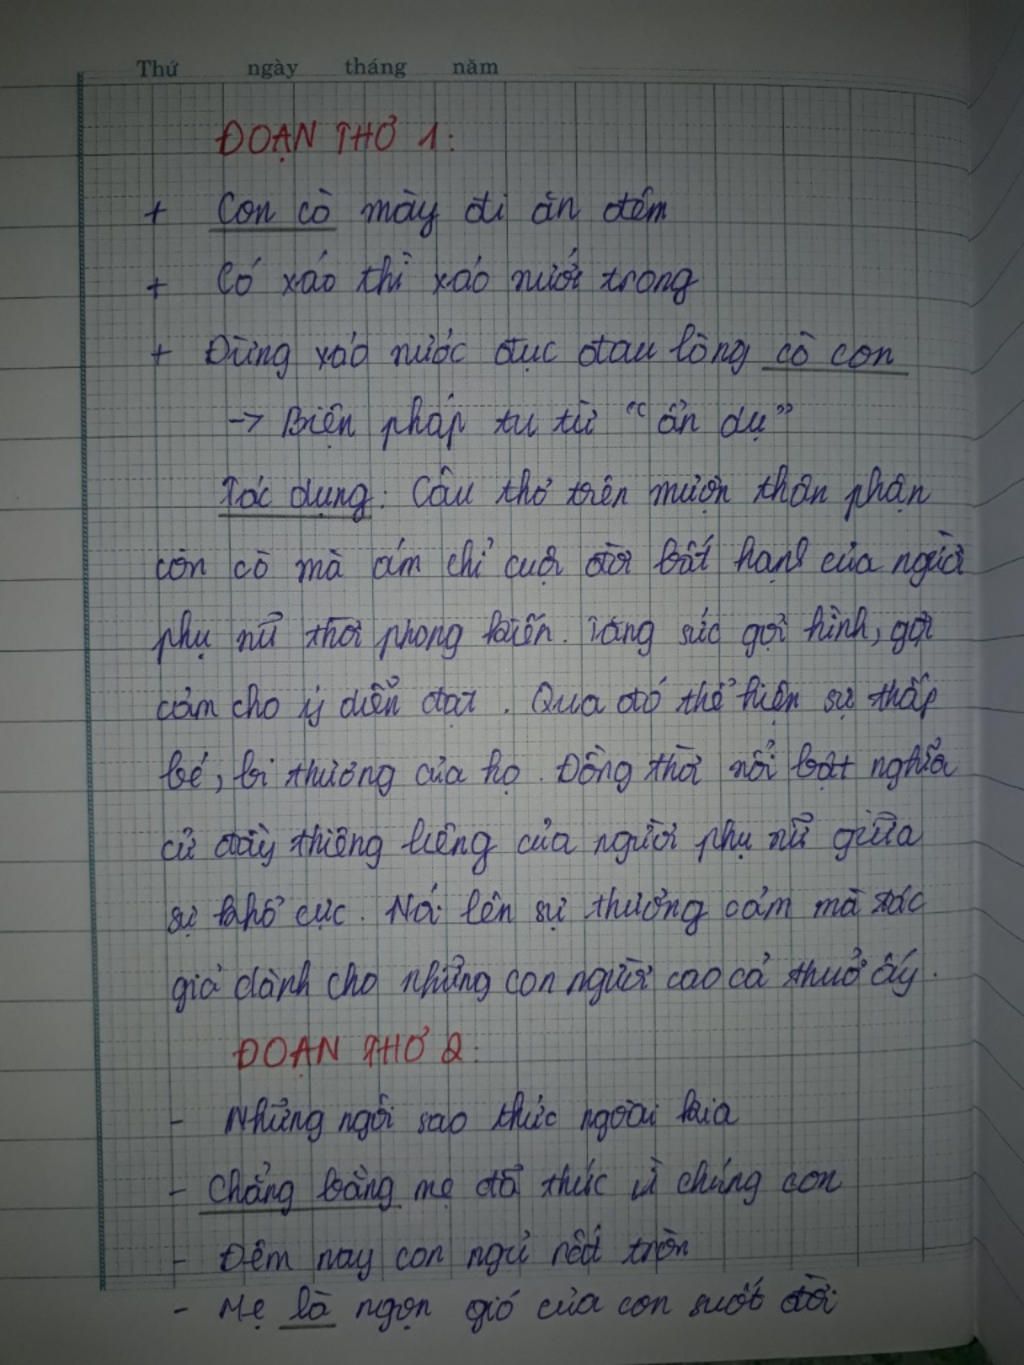 Thứ ngày tháng năm
ĐOẠN THƠ 1:
+ Con cò mày đi ăn đêm
+ Có xáo thì xáo nước trong
+ Đừng xáo nước đục đau lòng cò con
-> Biện pháp tu từ "ẩn dụ"
Tác dụng: Câu thơ trên mượn thân phận
con cò mà ám chỉ cuộc đời bất hạnh của người
phụ nữ thời phong kiến. Tăng sức gợi hình, gợi
cảm cho ý diễn đạt. Qua đó thể hiện sự thấp
bé, bi thương của họ. Đồng thời nổi bật nghĩa
cử đầy thiêng liêng của người phụ nữ giữa
sự khổ cực. Nói lên sự thương cảm mà tác
giả dành cho những con người cao cả thuở ấy.
ĐOẠN THƠ 2:
- Những ngôi sao thức ngoài kia
- Chẳng bằng mẹ đã thức vì chúng con
- Đêm nay con ngủ rồi tròn
- Mẹ là ngọn gió của con suốt đời